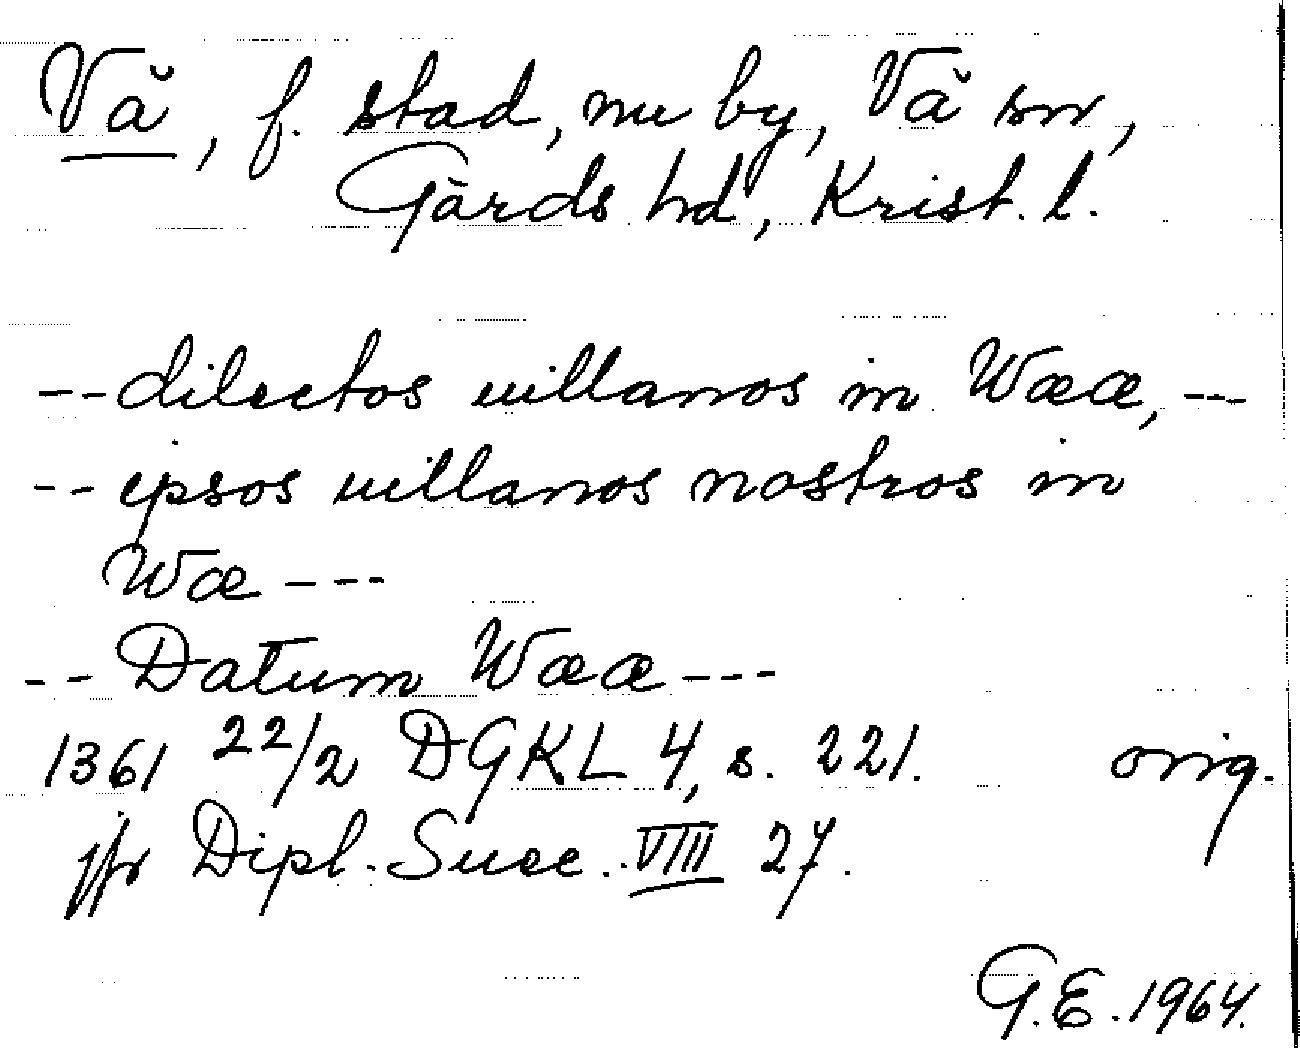 Vä, f. stad, nu by, Vä sn,
Gärds hd, Krist. l.
--dilectos uillanos in Wææ, ---
-- ipsos uillanos nostros in
Wæ ---
-- Datum Wææ ---
1361 22/2 DGKL 4, s. 221. orig.
jfr Dipl. Suec. VIII 27.
G.E. 1964.